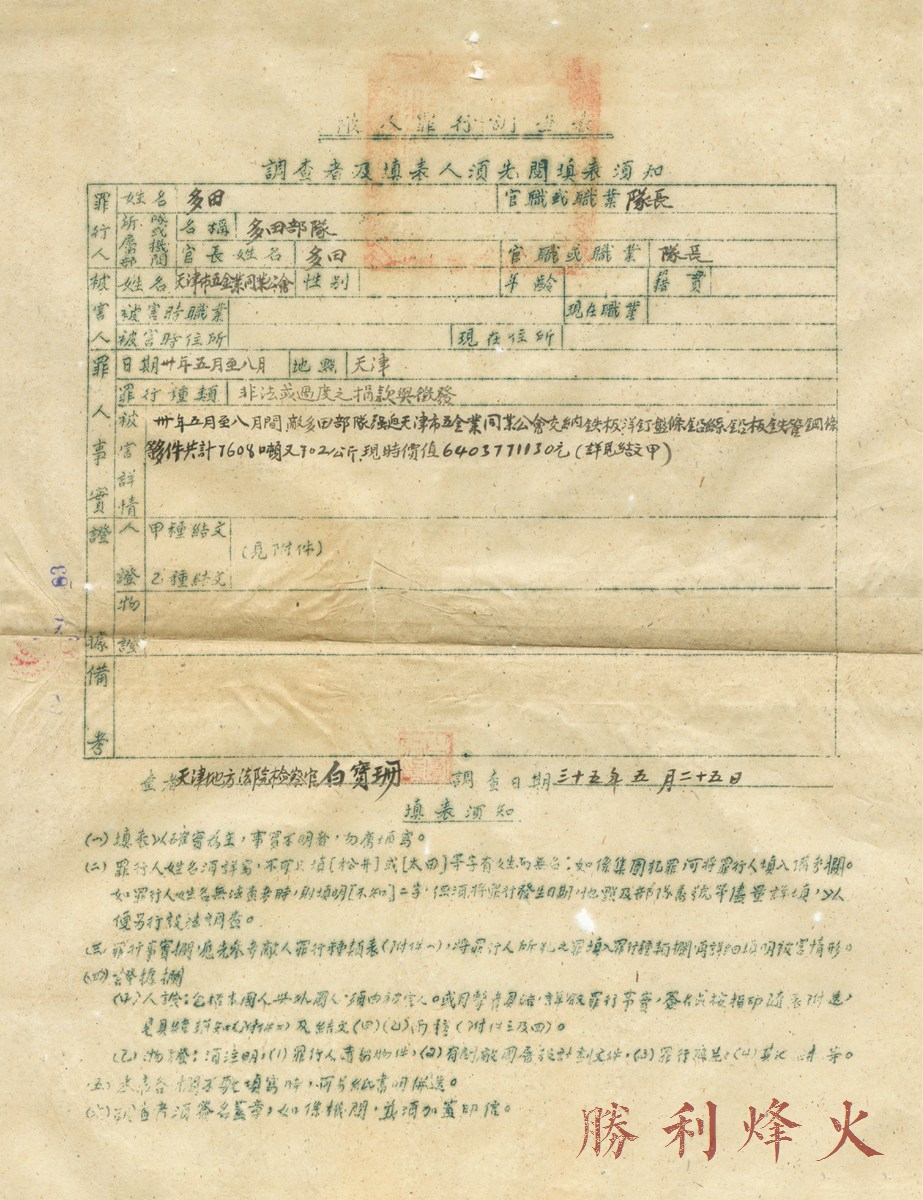 敵人罪行調查表
調查者及填表人須先閱填表須知
罪行人 姓名 多田 官職或職業 隊長
所屬部隊或機關 名稱 多田部隊
官長姓名 多田 官職或職業 隊長
被害人 姓名 天津市五金業同業公會 性別 年齡 籍貫
被害時職業 現在職業
被害時住所 現在住所
罪人事實 日期 卅年五月至八月 地點 天津
罪行種類 非法或過度之捐款與徵發
被害詳情 卅年五月至八月間敵多田部隊強迫天津市五金業同業公會交納鉄板洋釘盤條鉛絲鉛板鉄管鋼條
等件共計7608噸又902公斤現時價值6403771130元(詳見結文甲)
證據 人證 甲種結文
(見附件)
乙種結文
物證
備考
查者天津地方法院檢察官白寶珊 調查日期三十五年五月二十五日
填表須知
(一)填表以確實為主,事實不明者,勿庸填寫。
(二)罪行人姓名須詳寫,不可只填[松井]或[太田]等字有姓而無名;如係集團犯罪可將罪行人填入備考欄。
如罪行人姓名無法查考時,則填明[不知]二字,但須將罪行發生日期,地點及部隊番號等儘量詳填,以
便另行設法調查。
(三)罪行事實欄,應先參考敵人罪行種類表(附件一),將罪行人所犯之罪填入罪行種類欄再詳細填明被害情形。
(四)證據欄
(甲)人證:包括本國人與外國人,須由被害人。或目擊者具結,詳敘罪行事實,簽名或按指印隨表附送,
具結須知(附件二)及結文(甲)(乙)兩種(附件三及四)。
(乙)物證:須注明,(1)罪行人遺留物件,(2)有關敵國 設計劃文件,(3)罪行照片,(4)其他 等。
(五)本表各欄不敷填寫時,可另紙書明附送。
(六)調查者須簽名蓋章,如係機關,並須加蓋印信。
勝利烽火